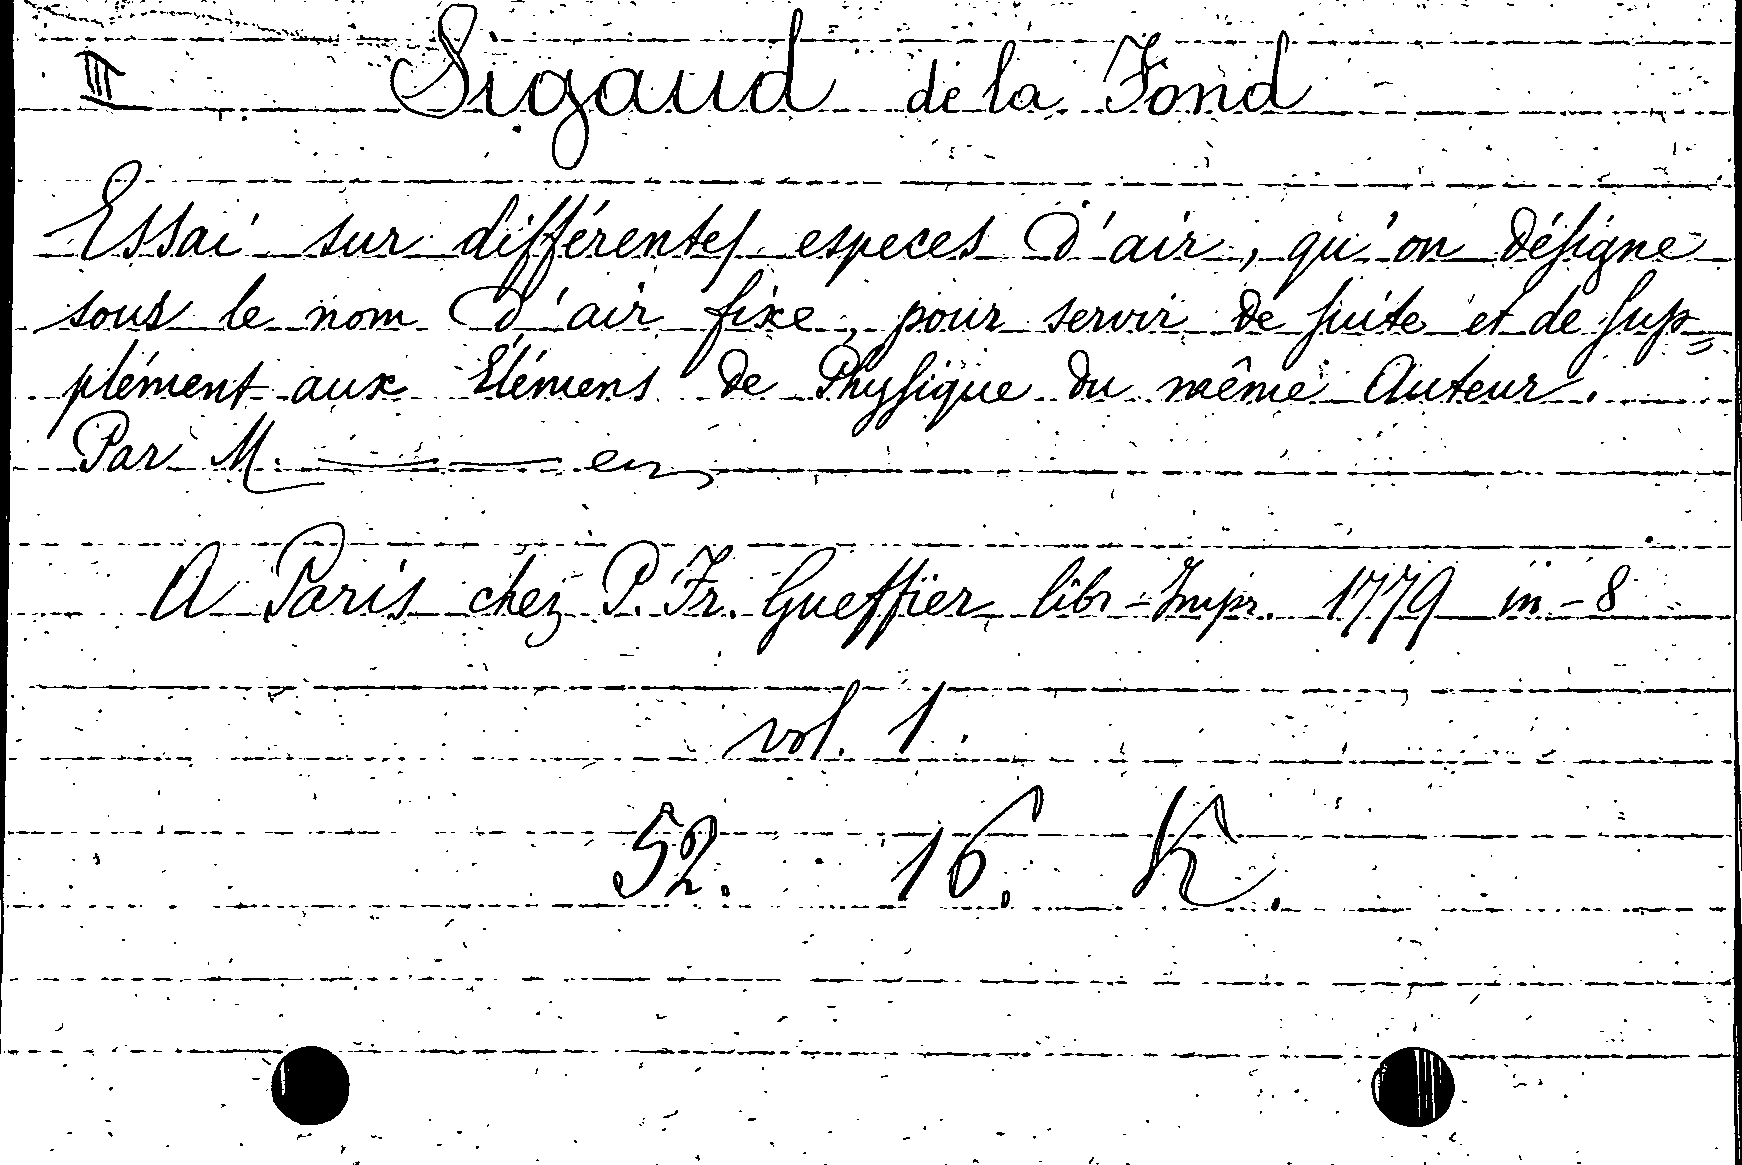 III Sigaud de la Fond
Essai sur différentes especes d'air, qu'on désigne
sous le nom d'air fixe, pour servir de suite et de sup=
plément aux Elémens de Physique du même Auteur.
Par M. ——— en
A Paris chez P. Fr. Gueffier libr-Impr. 1779 in-8
vol. 1.
52. 16. K.